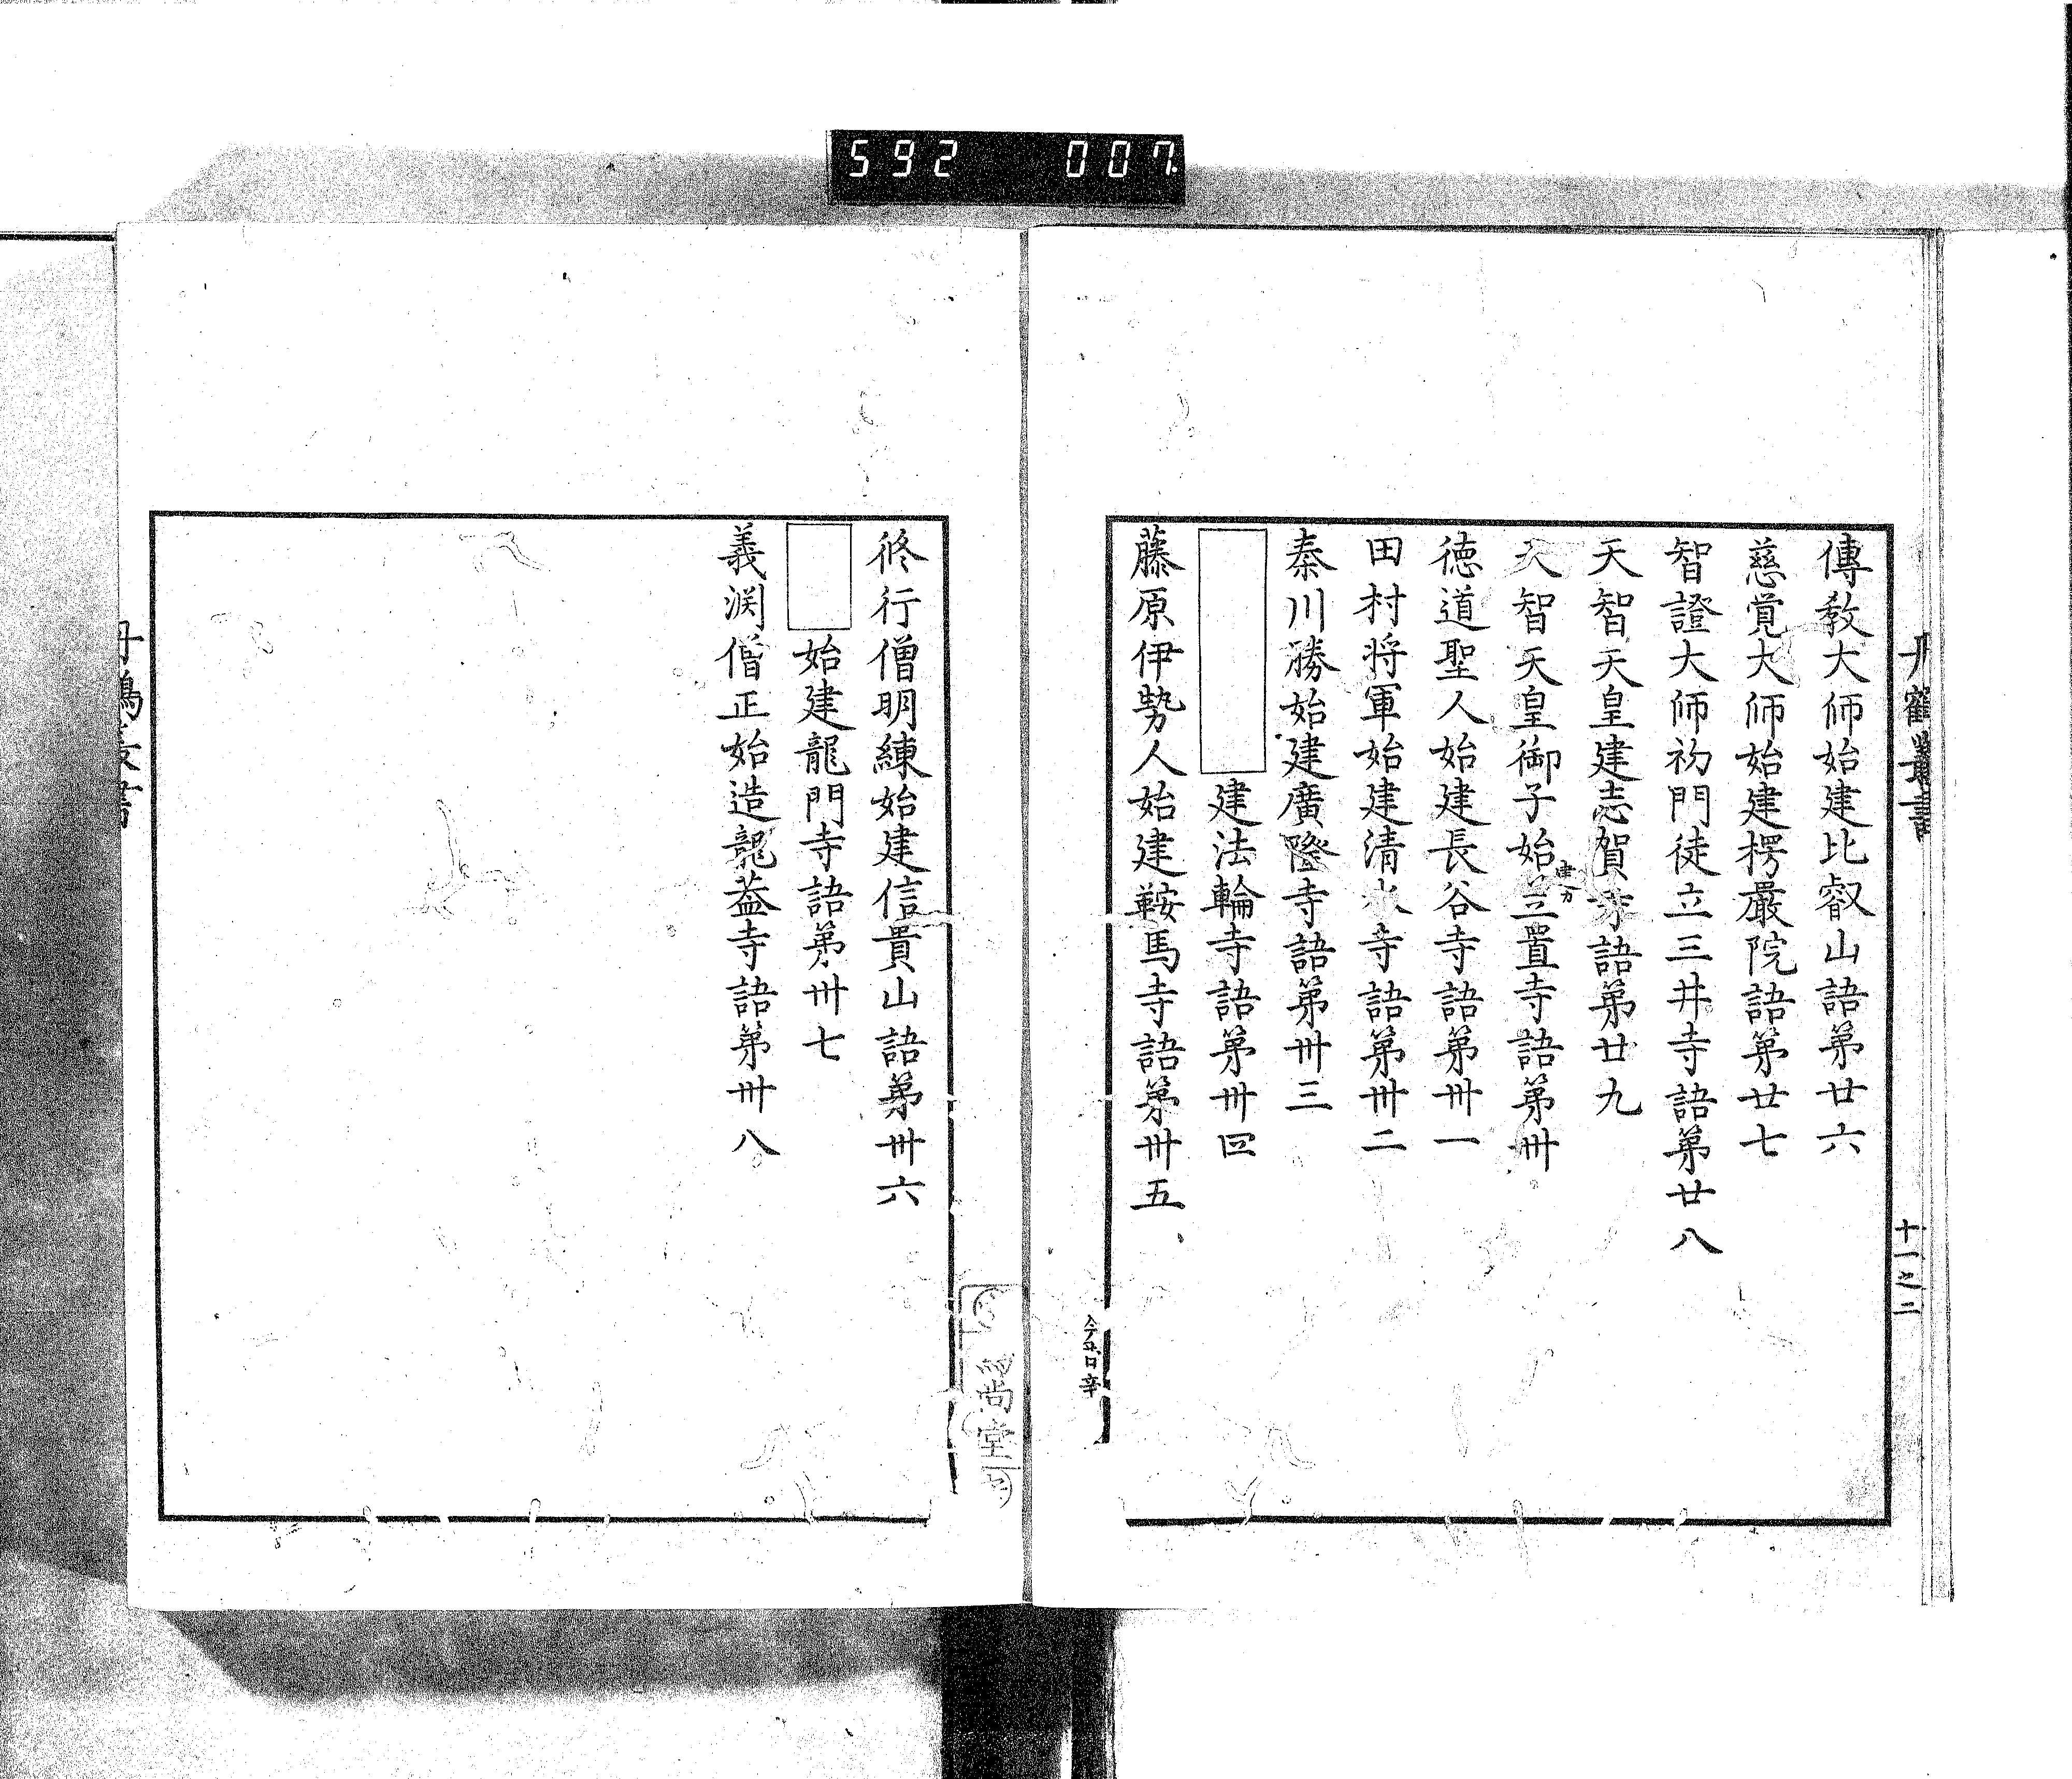 592 007
丹鶴叢書
十一之二
傳教大師始建比叡山語第廿六
慈覚大師始建楞嚴院語第廿七
智證大師初門徒立三井寺語第廿八
天智天皇建志賀寺語第廿九
天智天皇御子始笠置寺語第卅
建力
徳道聖人始建長谷寺語第卅一
田村将軍始建清水寺語第卅二
秦川勝始建廣隆寺語第卅三
建法輪寺語第卅四
藤原伊勢人始建鞍馬寺語第卅五
修行僧明練始建信貴山語第卅六
始建龍門寺語第卅七
義渕僧正始造龍蓋寺語第卅八